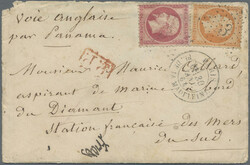 Voie anglaise
par Panama.
P.D.
Monsieur Maurice
aspirant de marine
du Diamant
Station française des Mers
du Sud